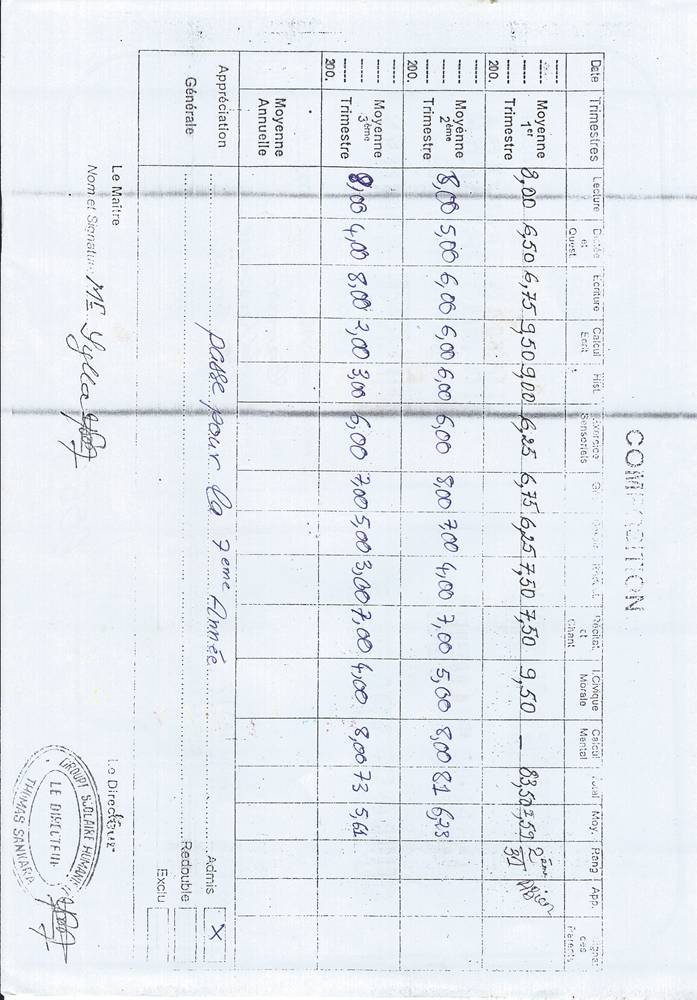 COMPOSITION
Date Trimestres Lecture Dictée et Quest. Ecriture Calcul Ecrit Hist. Exercice Sensoriels Récitat. et Chant I.Civique Morale Calcul Mental Total Moy. Rang App. Signat. des Parents
200. Moyenne 1er Trimestre 8,00 6,50 6,75 9,50 9,00 6,25 6,75 6,25 7,50 7,50 9,50 — 83,50 7,59 2ème/31 A.Bien
200. Moyenne 2ème Trimestre 8,00 5,00 6,00 6,00 6,00 6,00 8,00 7,00 4,00 7,00 5,00 8,00 81 6,23
200. Moyenne 3ème Trimestre 8,00 4,00 8,00 2,00 3,00 6,00 7,00 5,00 3,00 7,00 4,00 8,00 73 5,61
Moyenne Annuelle
Appréciation Générale
passe pour la 7ème Année
Admis X
Redouble
Exclu
Le Maître
Nom et Signature Mr Sylla
Le Directeur
GROUPE SCOLAIRE HUMANITE
LE DIRECTEUR
THOMAS SANKARA